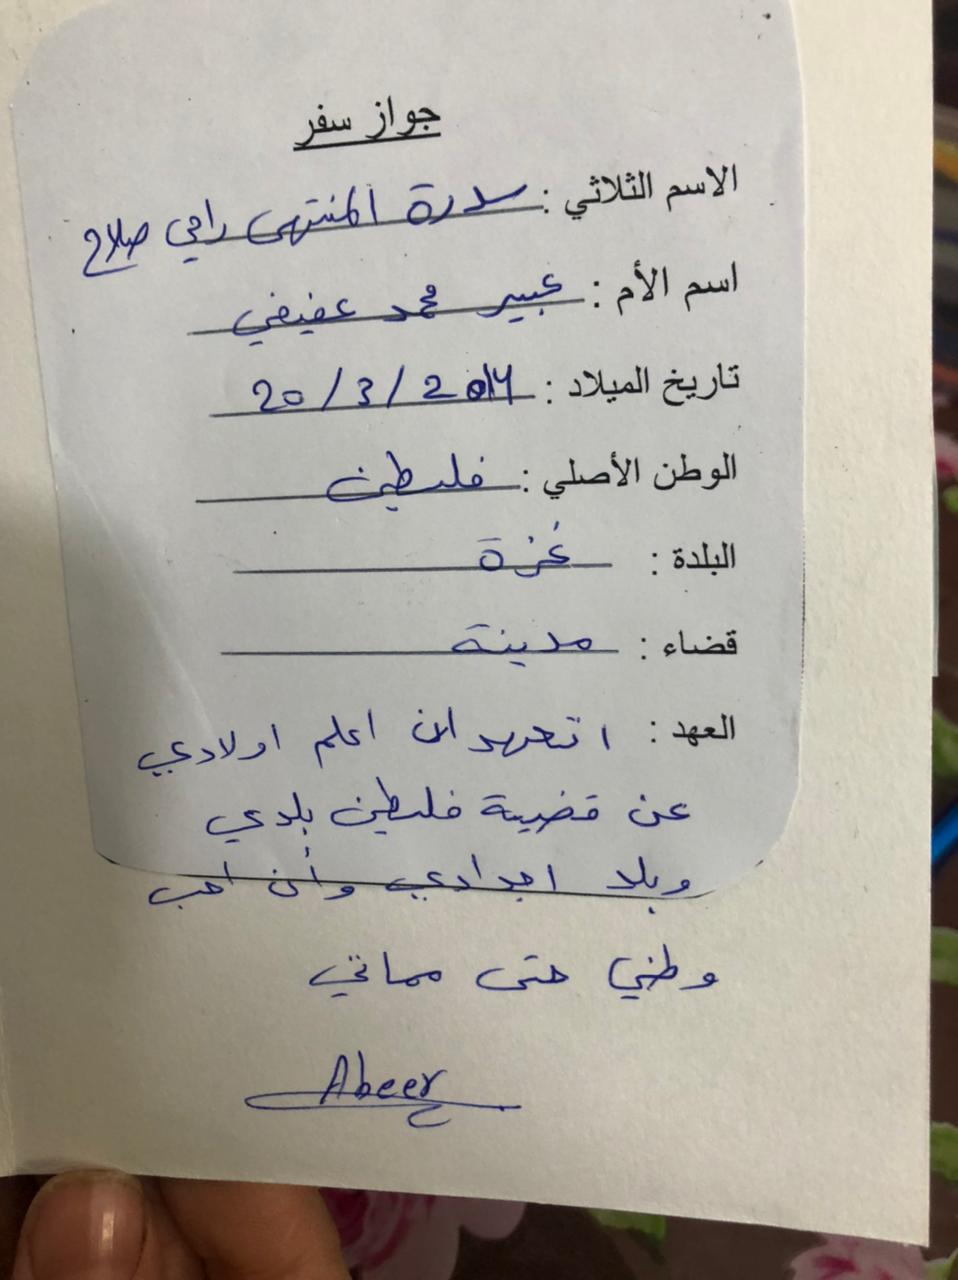 جواز سفر
الاسم الثلاثي : سدرة المنتهى رامي صلاح
اسم الأم : عبير محمد عفيفي
تاريخ الميلاد : 20/3/2014
الوطن الأصلي : فلسطين
البلدة : غزة
قضاء : مدينة
العهد : اتعهد ان اعلم اولادي
عن قضية فلسطين بلدي
وبلد اجدادي وأن احب
وطني حتى مماتي
Abeer